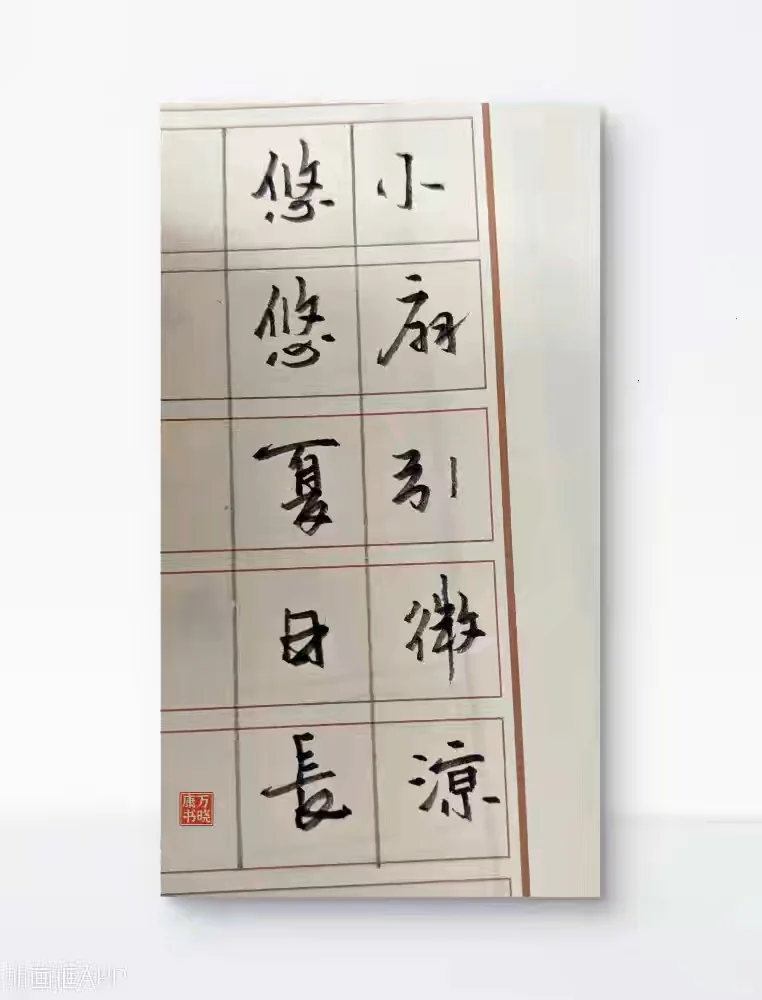 小扇引微凉
悠悠夏日長
万晓
康书
画框APP